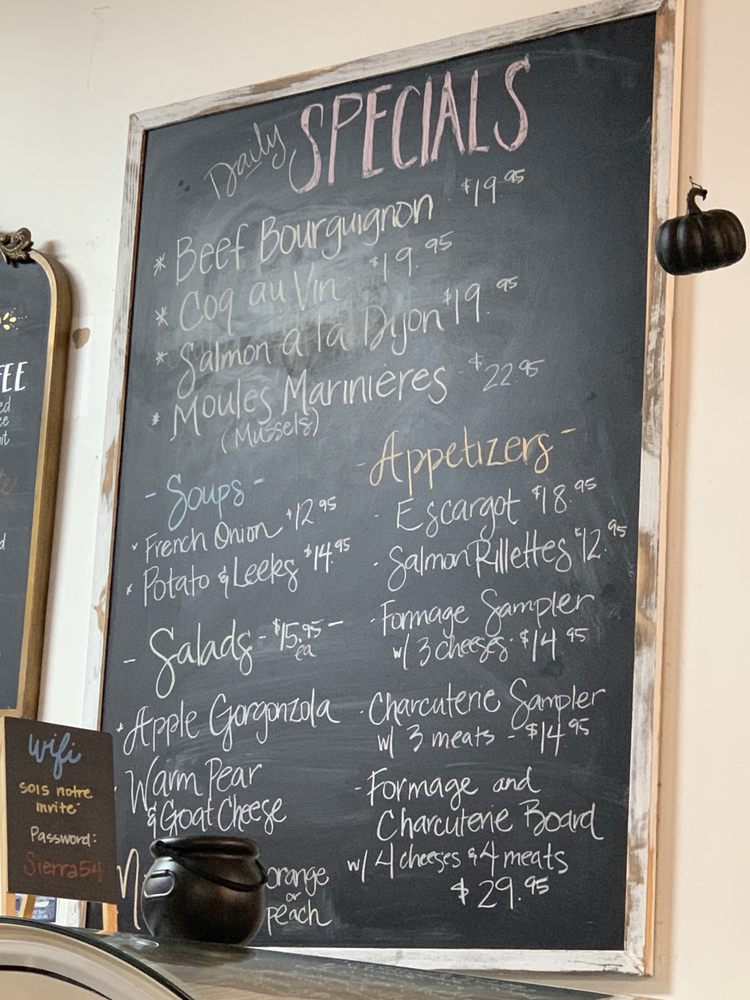 Daily SPECIALS
* Beef Bourguignon - $19.95
* Coq au Vin $19.95
* Salmon a la Dijon $19.95
* Moules Marinières - $22.95
(Mussels)
- Soups -
* French Onion $12.95
* Potato & Leeks $14.95
- Salads - $15.95 -
ea
* Apple Gorgonzola
Warm Pear
& Goat Cheese
orange
or
peach
- Appetizers -
- Escargot $18.95
- Salmon Rillettes $12.95
- Formage Sampler
w/ 3 cheeses - $14.95
- Charcuterie Sampler
w/ 3 meats - $14.95
- Formage and
Charcuterie Board
w/ 4 cheeses & 4 meats
$29.95
wifi
sois notre
invité
Password:
Sierra54